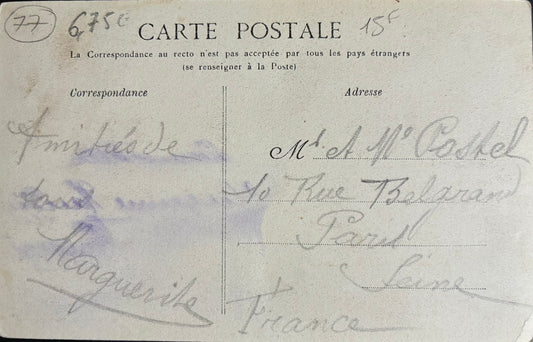 77
6,75€
15F
CARTE POSTALE
La Correspondance au recto n'est pas acceptée par tous les pays étrangers
(se renseigner à la Poste)
Correspondance
Adresse
Amitiés de
tous
Marguerite
Mr et Me Postel
10 Rue Belgrand
Paris
Seine
France